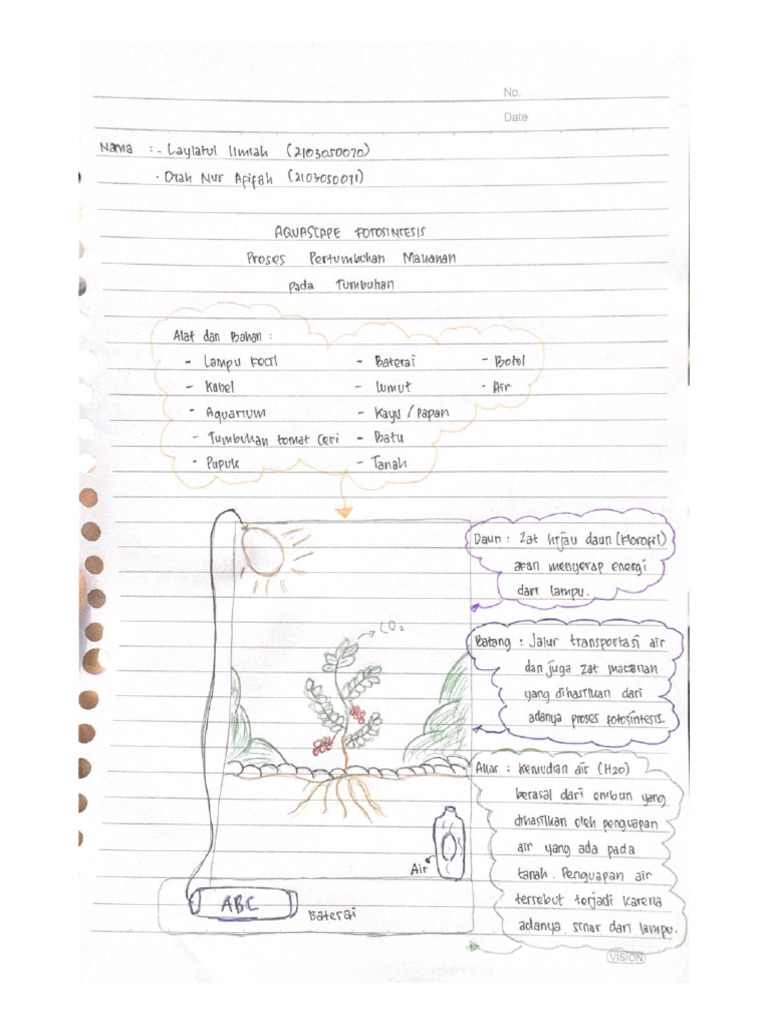 No.
Date
Nama : - Laylatul Ilmiah (2103050070)
- Diah Nur Afifah (2103050071)
AQUASCAPE FOTOSINTESIS
Proses Pertumbuhan Makanan
pada Tumbuhan
Alat dan Bahan :
- Lampu kecil - Baterai - Botol
- Kabel - Lumut - Air
- Aquarium - Kayu / Papan
- Tumbuhan tomat ceri - Batu
- Pupuk - Tanah
Daun : Zat hijau daun (klorofil)
akan menyerap energi
dari lampu.
CO₂
Batang : Jalur transportasi air
dan juga zat makanan
yang dihasilkan dari
adanya proses fotosintesis.
Akar : Kemudian air (H2O)
berasal dari embun yang
dihasilkan oleh penguapan
air yang ada pada
tanah. Penguapan air
tersebut terjadi karena
adanya sinar dari lampu.
Air
ABC
Baterai
VISION